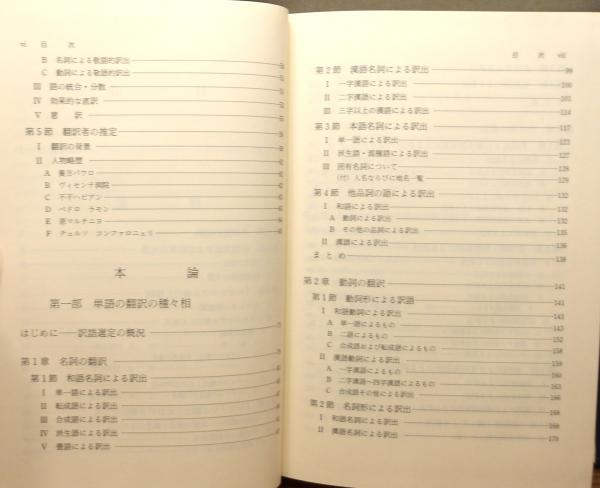 vi 目 次
B 名詞による敬語的訳出
C 動詞による敬語的訳出
III 語の統合・分散
IV 効果的な直訳
V 意 訳
第5節 翻訳者の推定
I 翻訳の背景
II 人物略歴
A 養方パウロ
B ヴィセンテ洞院
C 不干ハビアン
D ペドロ ラモン
E 原マルチニヨ
F チェルソ コンファロニェリ
本 論
第一部 単語の翻訳の種々相
はじめに——訳語選定の概況
第1章 名詞の翻訳
第1節 和語名詞による訳出
I 単一語による訳出
II 転成語による訳出
III 合成語による訳出
IV 派生語による訳出
V 畳語による訳出
目 次 vii
第2節 漢語名詞による訳出 99
I 一字漢語による訳出 100
II 二字漢語による訳出 101
III 三字以上の漢語による訳出 114
第3節 本語名詞による訳出 117
I 単一語による訳出 123
II 派生語・混種語による訳出 127
III 固有名詞について 128
(付) 人名ならびに地名一覧 129
第4節 他品詞の語による訳出 132
I 和語による訳出 132
A 動詞による訳出 132
B その他の品詞による訳出 135
II 漢語による訳出 136
まとめ 138
第2章 動詞の翻訳 141
第1節 動詞形による訳語 143
I 和語動詞による訳出 143
A 単一語によるもの 143
B 二語によるもの 152
C 合成語および転成語によるもの 158
II 漢語動詞による訳出 159
A 一字漢語によるもの 160
B 二字漢語〜四字漢語によるもの 163
C 合成語その他による訳出 166
第2節 名詞形による訳出 168
I 和語名詞による訳出 168
II 漢語名詞による訳出 170